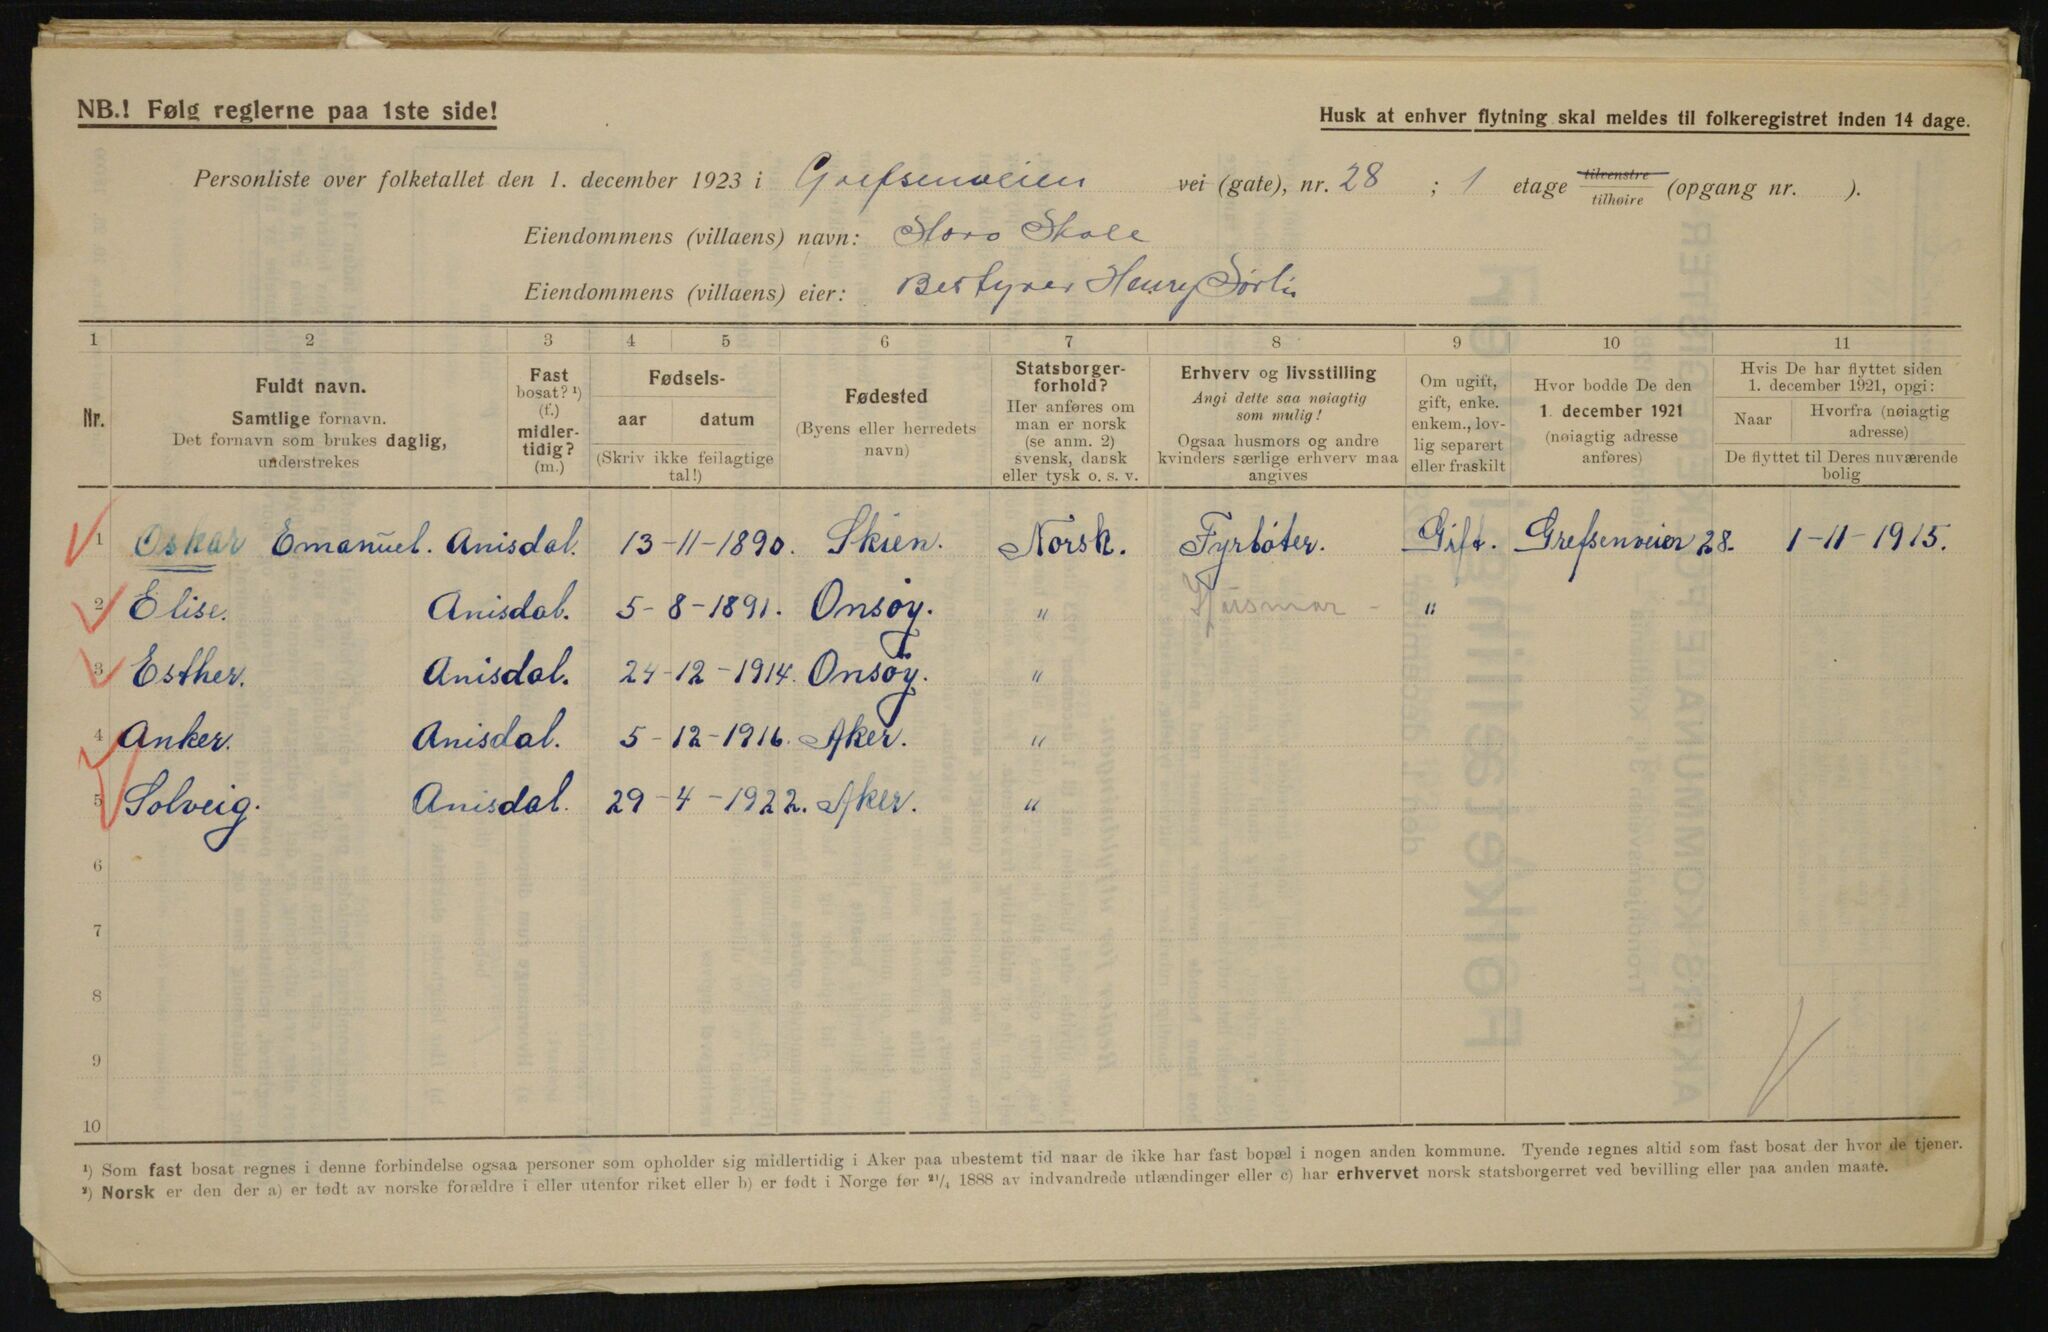 NB.! Følg reglerne paa 1ste side!
Husk at enhver flytning skal meldes til folkeregistret inden 14 dage.
Personliste over folketallet den 1. december 1923 i Grefsenveien vei (gate), nr. 28 ; 1 etage tilvenstre tilhøire (opgang nr. ).
Eiendommens (villaens) navn: Storo Skole
Eiendommens (villaens) eier: Bestyrer Henry Sørli
1 2 3 4 5 6 7 8 9 10 11
Nr.
Fuldt navn.
Samtlige fornavn.
Det fornavn som brukes daglig,
understrekes
Fast
bosat? ¹)
(f.)
midler-
tidig?
(m.)
Fødsels-
aar datum
(Skriv ikke feilagtige
tal!)
Fødested
(Byens eller herredets
navn)
Statsborger-
forhold?
Her anføres om
man er norsk
(se anm. 2)
svensk, dansk
eller tysk o. s. v.
Erhverv og livsstilling
Angi dette saa nøiagtig
som mulig!
Ogsaa husmors og andre
kvinders særlige erhverv maa
angives
Om ugift,
gift, enke.
enkem., lov-
lig separert
eller fraskilt
Hvor bodde De den
1. december 1921
(nøiagtig adresse
anføres)
Hvis De har flyttet siden
1. december 1921, opgi:
Naar Hvorfra (nøiagtig
adresse)
De flyttet til Deres nuværende
bolig
1 Oskar Emanuel. Anisdal. 13-11-1890. Skien. Norsk. Fyrbøter. Gift. Grefsenveien 28. 1-11-1915.
2 Elise. Anisdal. 5-8-1891. Onsøy. " Husmor - "
3 Esther. Anisdal. 24-12-1914. Onsøy. "
4 Anker. Anisdal. 5-12-1916. Aker. "
5 Solveig. Anisdal. 29-4-1922. Aker. "
6
7
8
9
10
¹) Som fast bosat regnes i denne forbindelse ogsaa personer som opholder sig midlertidig i Aker paa ubestemt tid naar de ikke har fast bopæl i nogen anden kommune. Tyende regnes altid som fast bosat der hvor de tjener.
²) Norsk er den der a) er født av norske forældre i eller utenfor riket eller b) er født i Norge før ²¹/₄ 1888 av indvandrede utlændinger eller c) har erhvervet norsk statsborgerret ved bevilling eller paa anden maate.